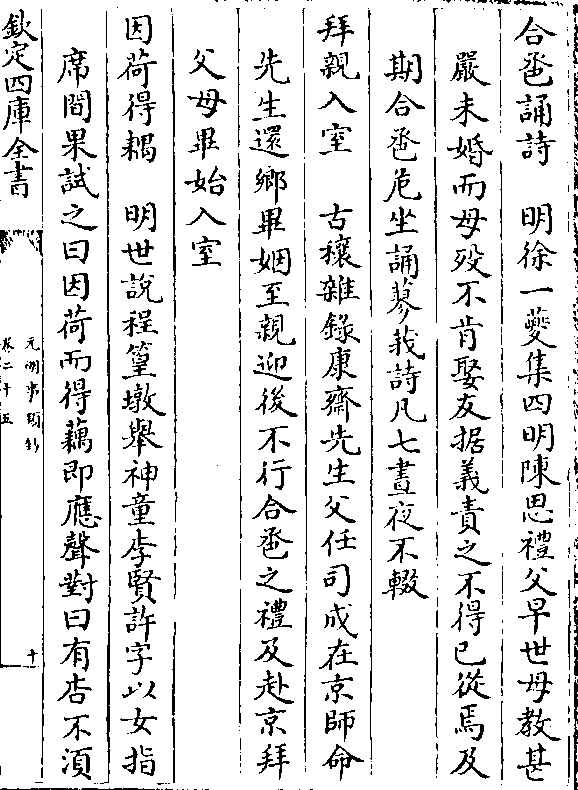 合巹誦詩　明徐一夔集四明陳思禮父早世母教甚
嚴未婚而母歿不肯娶友据義責之不得已從焉及
期合巹危坐誦蓼莪詩凡七晝夜不輟
拜親入室　古穰雜錄康齋先生父任司成在京師命
先生還鄉畢姻至親迎後不行合巹之禮及赴京拜
父母畢始入室
因荷得耦　明世說程篁墩舉神童李賢許字以女指
席間果試之曰因荷而得藕即應聲對曰有杏不湏
欽定四庫全書
元明事類鈔
卷二十五
十